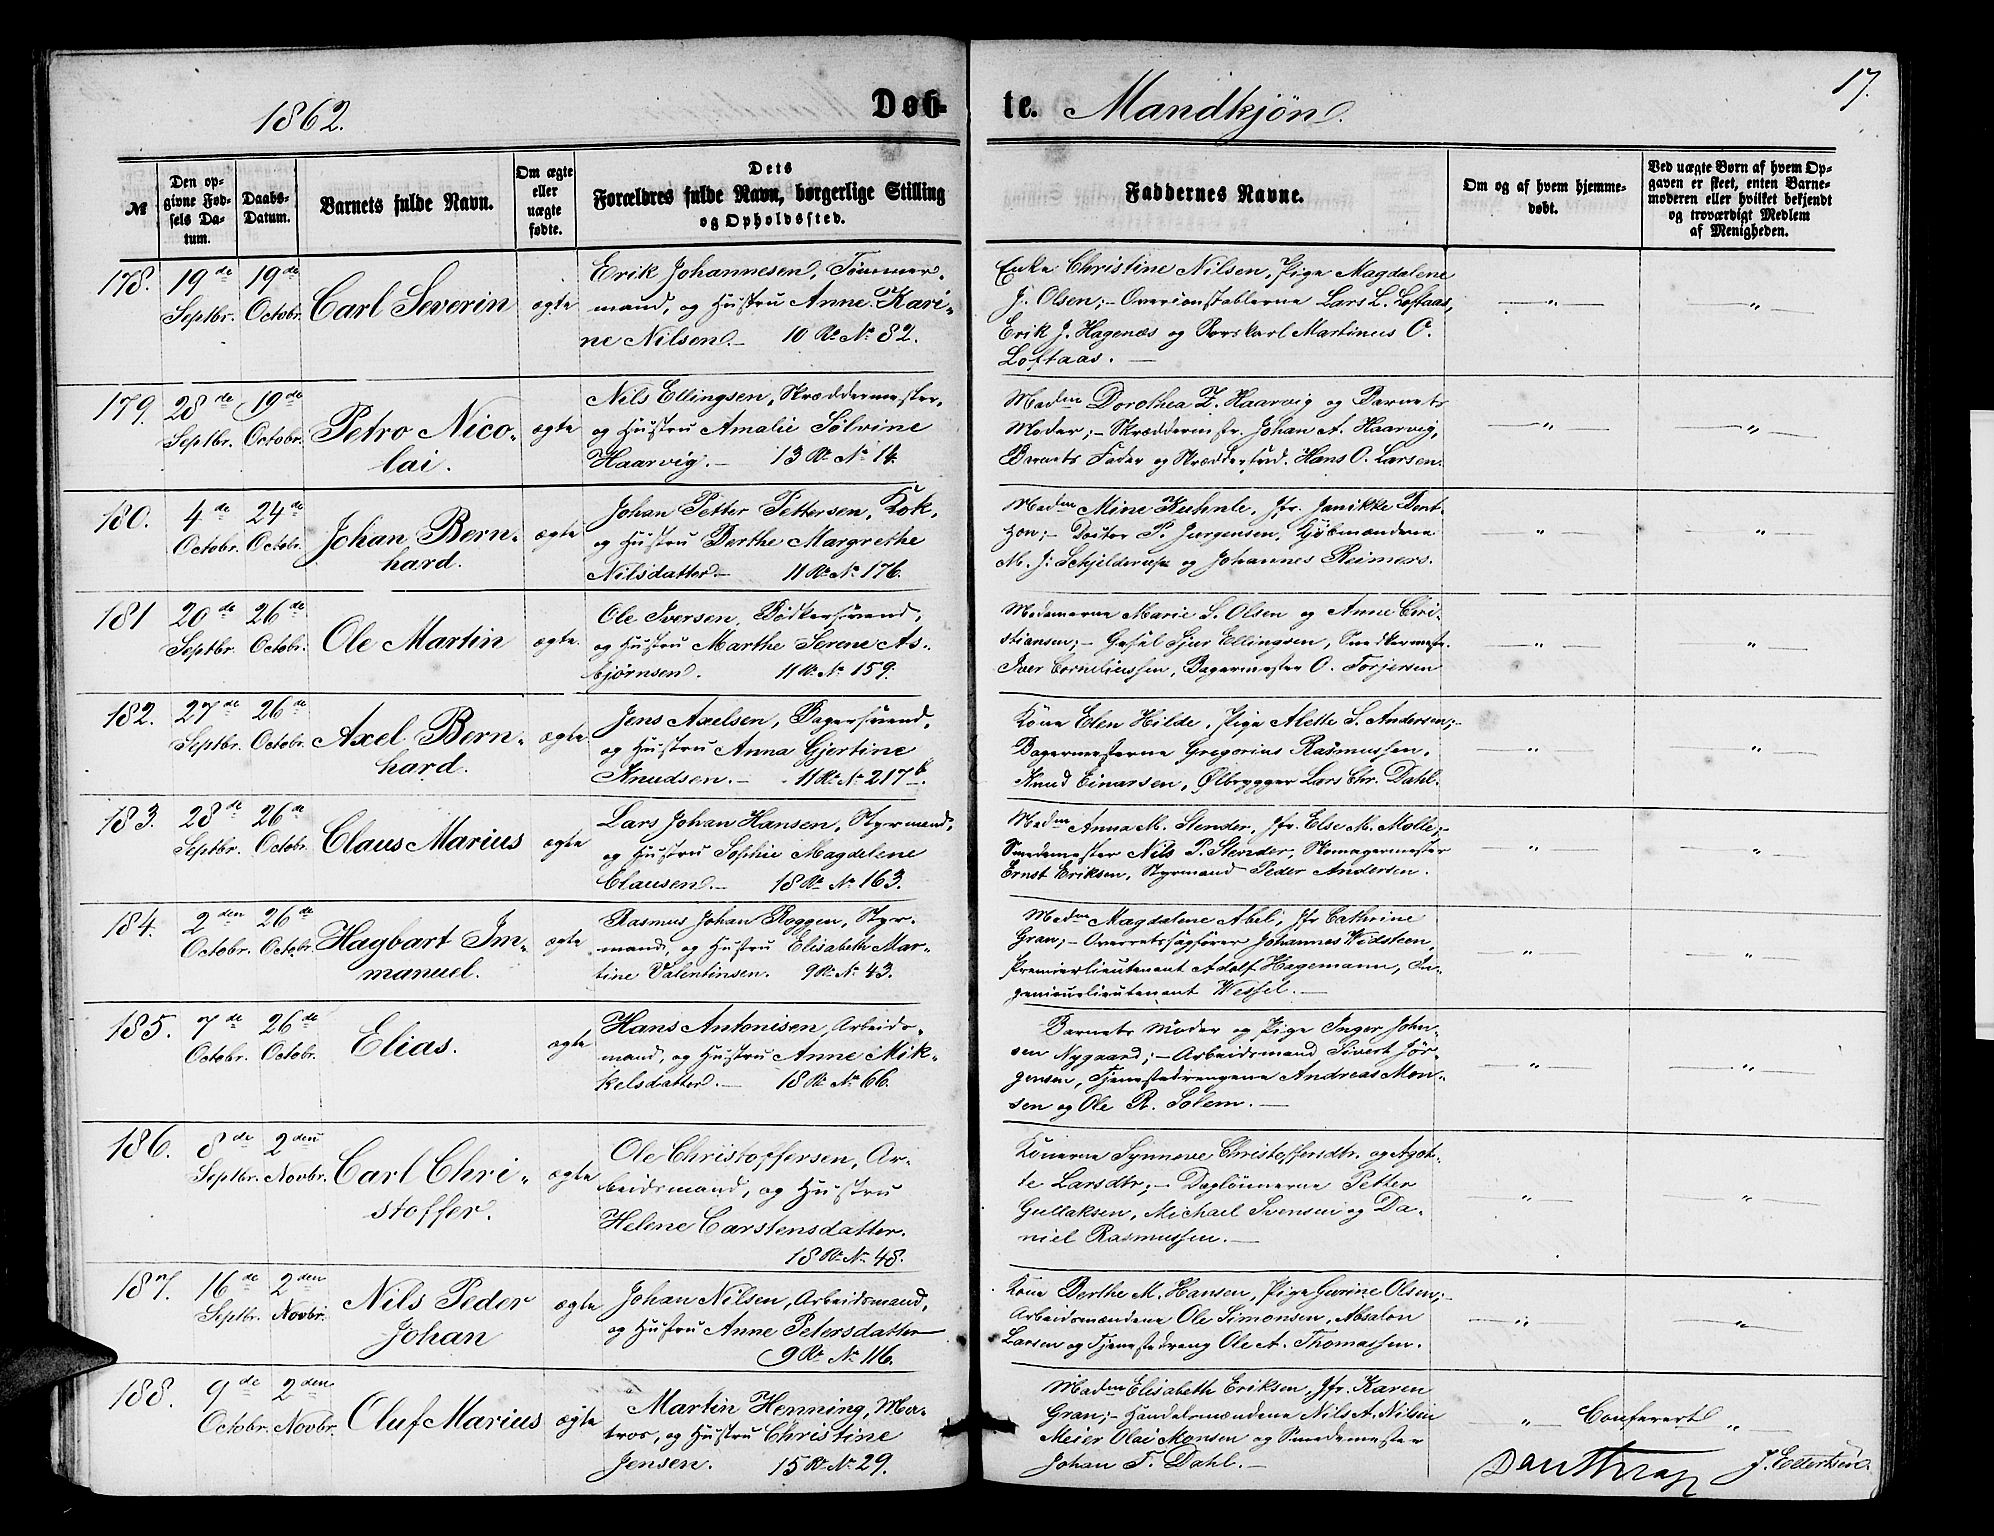 1862.
Døb-
te. Mandkjøn.
17.
№
Den op-
givne Fød-
sels Da-
tum.
Daabs-
Datum.
Barnets fulde Navn.
Om ægte
eller
uægte
fødte.
Dets
Forældres fulde Navn, borgerlige Stilling
og Opholdssted.
Faddernes Navne.
Om og af hvem hjemme-
døbt.
Ved uægte Børn af hvem Op-
gaven er skeet, enten Barne-
moderen eller hvilket bekjendt
og troværdigt Medlem
af Menigheden.
178.
19de
Septbr.
19de
Octobr.
Carl Severin
ægte
Erik Johannesen, Tømmer-
mand, og Hustru Anne Kari-
ne Nilsen.— 10 R. No 82.
Enke Christine Nilsen, Pige Magdalene
J. Olsen;— Overconstablerne Lars L. Loftaas,
Erik J. Hagenæs og Martinus O.
Loftaas.—
179.
28de
Septbr.
19de
Octobr.
Petro Nico-
lai.
ægte
Nils Ellingsen, Skræddermester,
og Hustru Amalie Sølvine
Haarvig.— 13 R. No 14.
Madm Dorothea Z. Haarvig og Barnets
Moder;— Skræddermstr. Johan A. Haarvig,
Barnets Fader og Skræddersvd. Hans O. Larsen.
180.
4de
Octobr.
24de
Octobr.
Johan Bern-
hard.
ægte
Johan Petter Pettersen, Kok,
og Hustru Berthe Margrethe
Nilsdatter.— 11 R. No 176.
Madm Mine Kuhnle, Jfr. Janikke Bent-
zon;— Doctor P. Jürgensen, Kjøbmændene
M. J. Schjelderup og Johannes Reimers.
181
20de
Septbr.
26de
Octobr.
Ole Martin
ægte.
Ole Iversen, Bødkersvend,
og Hustru Marthe Serene As-
bjørnsen. 11 R. No 159.
Madamerne Marie S. Olsen og Anne Chri-
stiansen;— Gesel Sjur Ellingsen, Snedkermestr.
Iver Corneliussen, Bagermester O. Torjersen
182.
27de
Septbr.
26de
Octobr.
Axel Bern-
hard.
ægte
Jens Axelsen, Bagersvend,
og Hustru Anna Gjertine
Knudsen.— 11 R. No 217b.
Kone Elen Hilde, Pige Alette S. Andersen;—
Bagermesterne Gregorius Rasmussen,
Knud Einarsen, Ølbrygger Lars Chr. Dahl.
183.
28de
Septbr.
26de
Octobr.
Claus Marius
ægte
Lars Johan Hansen, Styrmand,
og Hustru Sophie Magdelene
Clausen.— 18 R. No 163.
Madm Anna M. Stender, Jfr. Else M. Molle;—
Smedemester Nils P. Stender, Skomagermester
Ernst Eriksen, Styrmand Peder Andersen.
184.
2den
Octobr.
26de
Octobr.
Hagbart Im-
manuel.
ægte
Rasmus Johan Roggen, Styr-
mand, og Hustru Elisabeth Mar-
tine Valentinsen. 9 R. No 43.
Madm Magdalene Abel, Jfr Cathrine
Gran;— Overretssagfører Johannes Widsteen,
Premierlieutenant Adolf Hagemann, In-
genieurlieutenant Wessel.—
185.
7de
Octobr.
26de
Octobr.
Elias.
ægte
Hans Antonisen, Arbeids-
mand, og Hustru Anne Mik-
kelsdatter.— 18 R. No 66.
Barnets Moder og Pige Inger John-
sen Nygaard;— Arbeidsmand Sivert Jør-
gensen, Tjenestedrengene Andreas Mon-
sen og Ole R. Solem.—
186.
8de
Septbr.
2den
Novbr.
Carl Chri-
stoffer.
ægte
Ole Christoffersen, Ar-
beidsmand, og Hustru
Helene Carstensdatter.
18 R. No 48.
Konerne Synneve Christoffersdtr. og Agot-
te Larsdtr;— Daglønnerne Petter
Gullaksen, Michael Svensen og Da-
niel Rasmussen.—
187.
16de
Septbr.
2den
Novbr.
Nils Peder
Johan
ægte
Johan Nilsen, Arbeidsmand,
og Hustru Anne Petersdatter
9 R. No 116.
Kone Berthe M. Hansen, Pige Gurine Olsen;—
Arbeidsmændene Ole Simonsen, Absalon
Larsen og Tjenestedreng Ole A. Thomassen.
188.
9de
Octobr.
2den
Novbr.
Oluf Marius
ægte
Martin Henning, Ma-
tros, og Hustru Christine
Jensen. 15 R. No 29.
Madm Elisabeth Eriksen, Jfr. Karen
Gran;— Handelsmændene Nils A. Nilsen
Meier Olai Monsen og Smedemester
Johan T. Dahl.—
Confereret
Daa Thrap